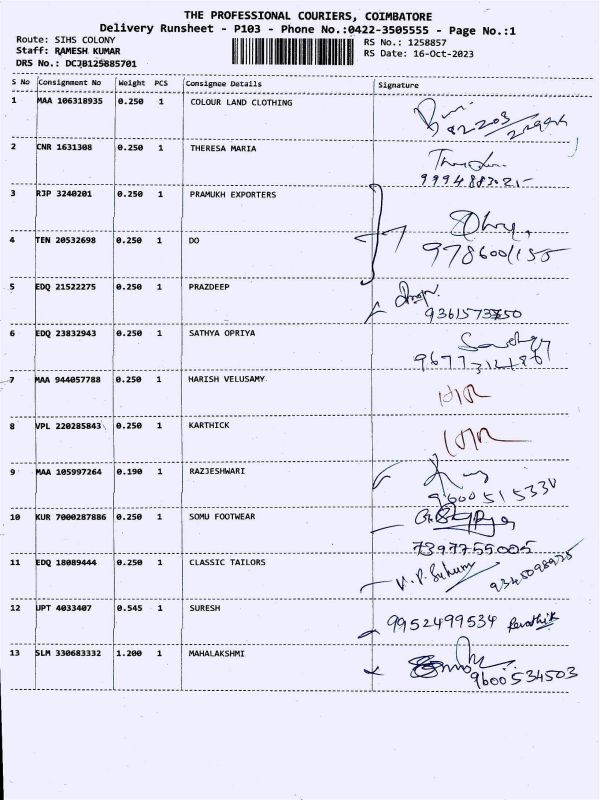 THE PROFESSIONAL COURIERS, COIMBATORE
Delivery Runsheet - P103 - Phone No.:0422-3505555 - Page No.:1
Route: SIHS COLONY
RS No.: 1258857
Staff: RAMESH KUMAR
RS Date: 16-Oct-2023
DRS No.: DCJB125885701
S No Consignment No Weight PCS Consignee Details Signature
1 MAA 106318935 0.250 1 COLOUR LAND CLOTHING
2 CNR 1631308 0.250 1 THERESA MARIA
3 RJP 3240201 0.250 1 PRAMUKH EXPORTERS
4 TEN 20532698 0.250 1 DO
5 EDQ 21522275 0.250 1 PRAZDEEP
6 EDQ 23832943 0.250 1 SATHYA OPRIYA
7 MAA 944057788 0.250 1 HARISH VELUSAMY
8 VPL 220285843 0.250 1 KARTHICK
9 MAA 105997264 0.190 1 RAZJESHWARI
10 KUR 7000287886 0.250 1 SOMU FOOTWEAR
7397759005
11 EDQ 18089444 0.250 1 CLASSIC TAILORS
12 UPT 4033407 0.545 1 SURESH
9952499534
13 SLM 330683332 1.200 1 MAHALAKSHMI
9600534503